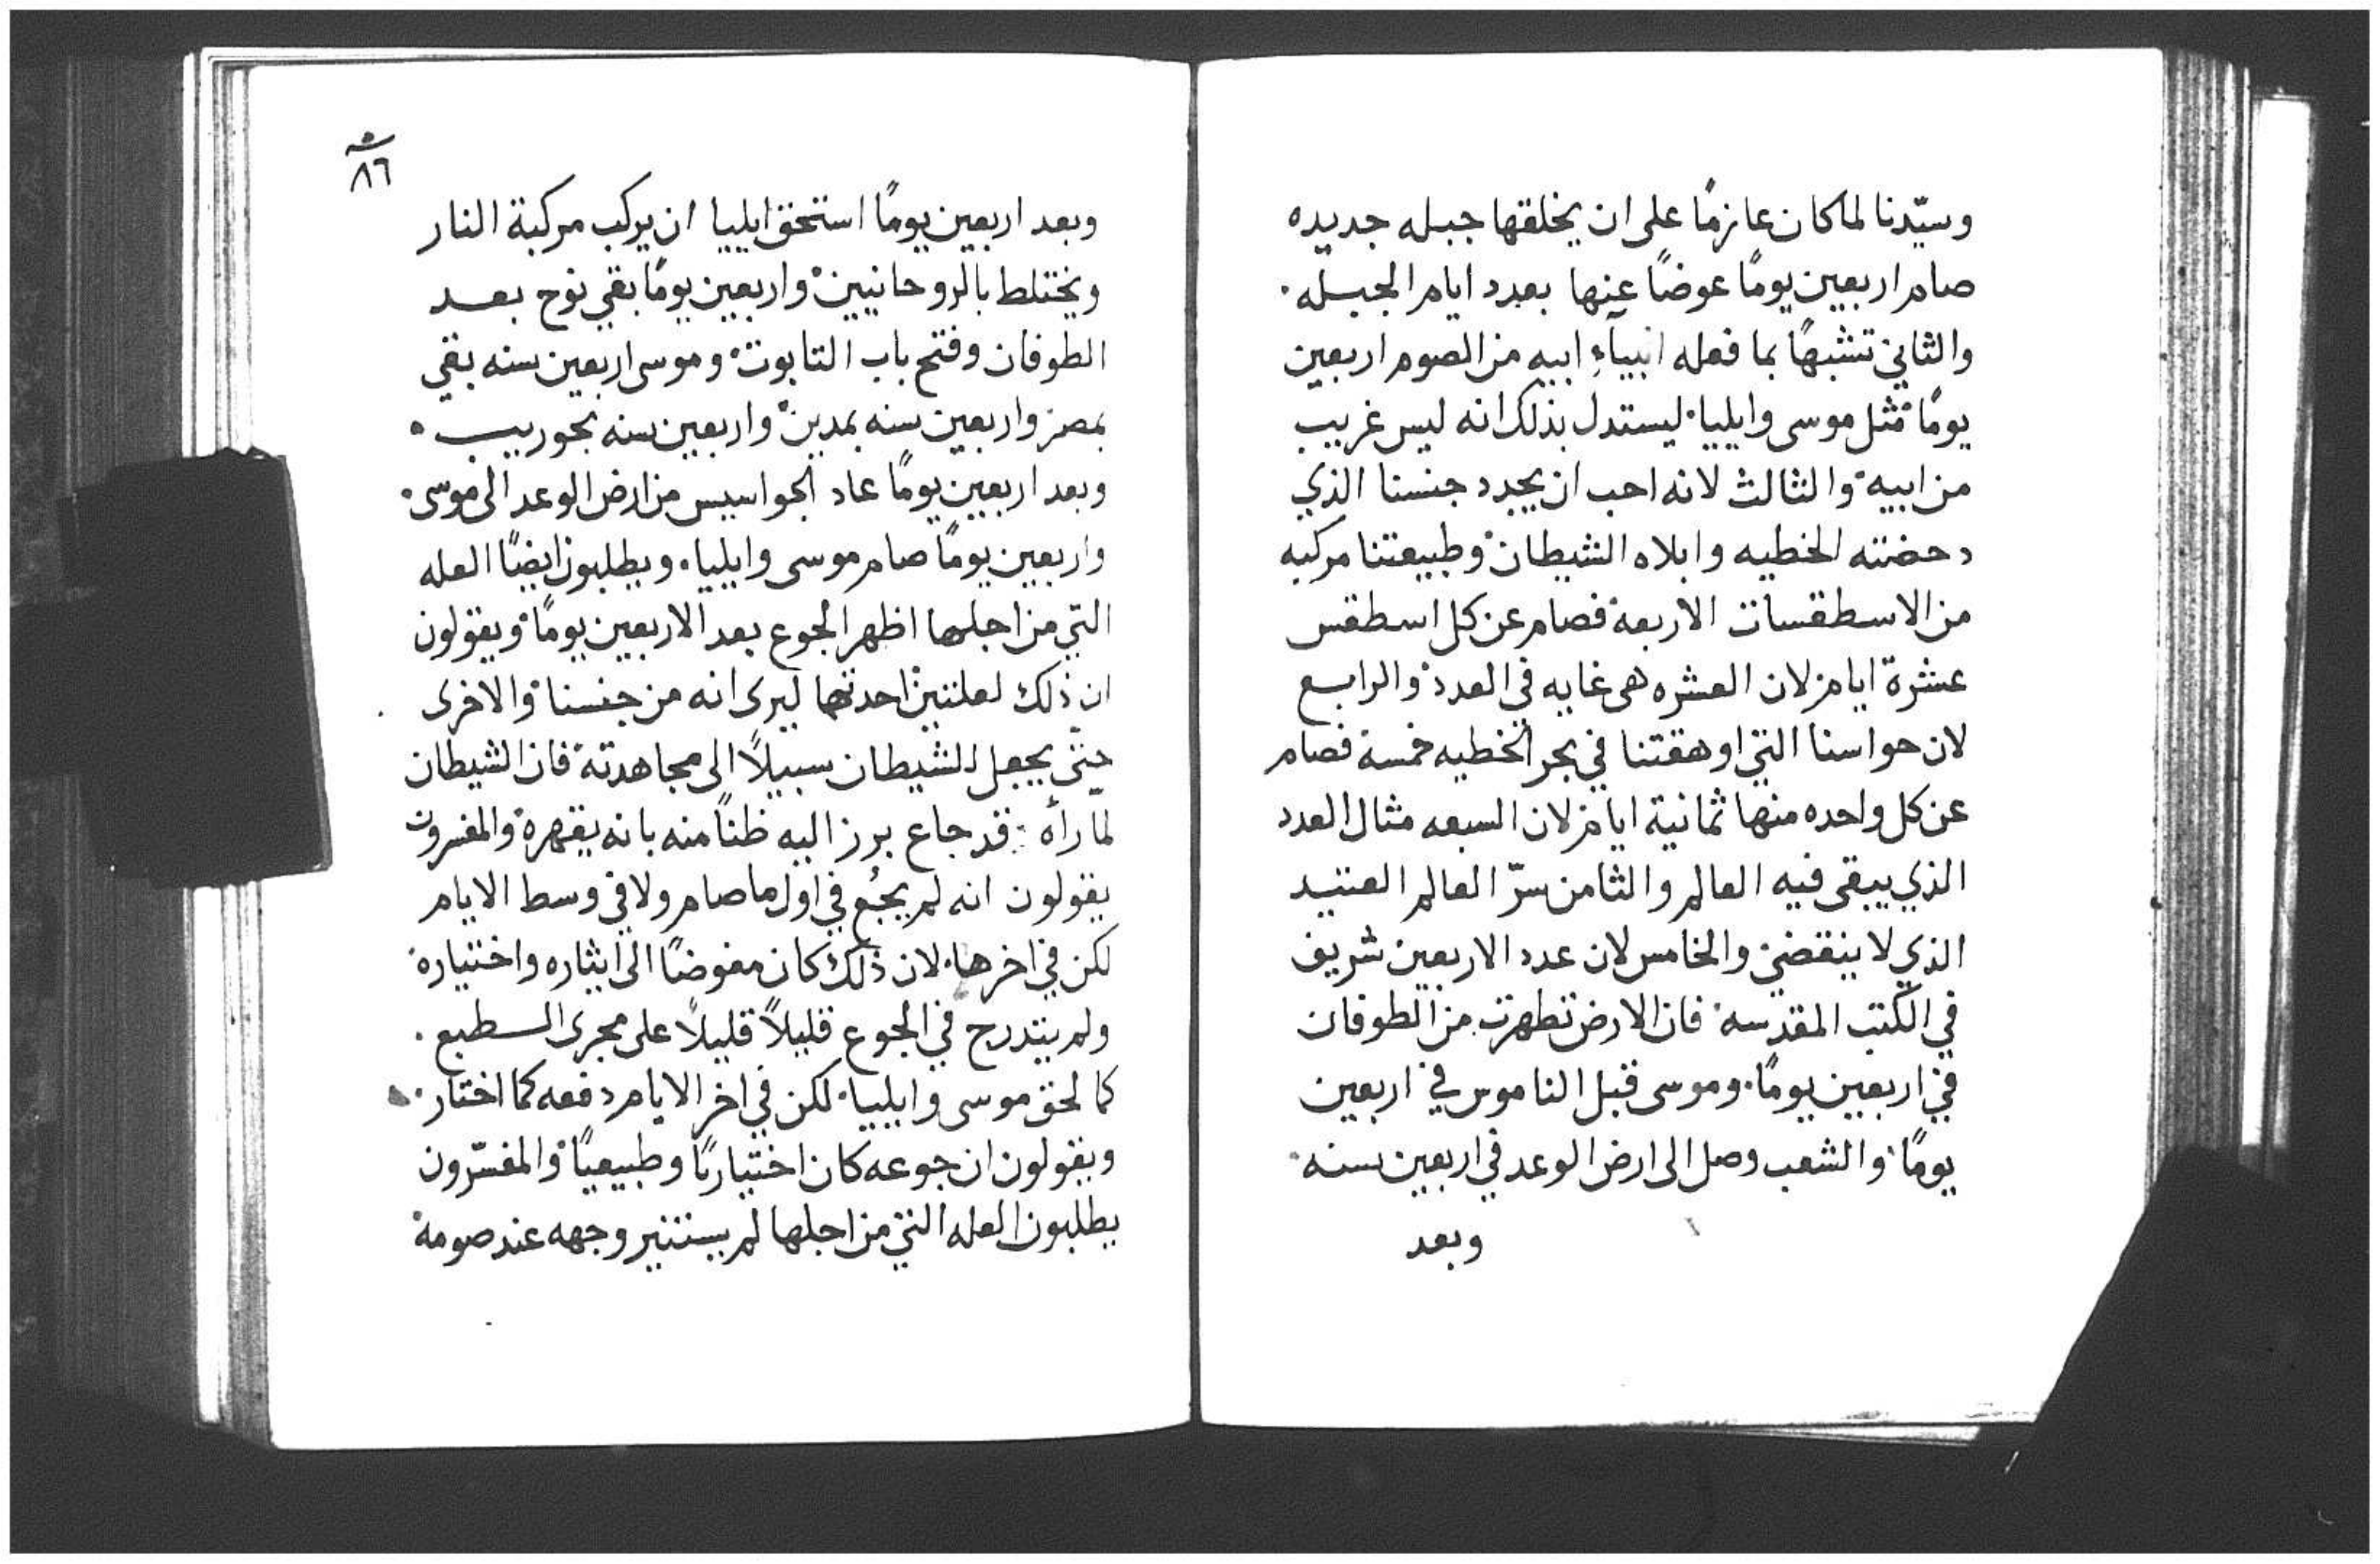 وسيّدنا لما كان عازمًا على ان يخلقها جبله جديده
صام اربعين يومًا عوضًا عنها بعدد ايام الجبله.
والثاني تشبهًا بما فعله انبيآء ابيه من الصوم اربعين
يومًا مثل موسى وايليا. ليستدل بذلك انه ليس غريب
من ابيه. والثالث لانه احب ان يجدد جنسنا الذي
دحضته الخطيه وابلاه الشيطان. وطبيعتنا مركبه
من الاسطقسات الاربعة فصام عن كل اسطقس
عشرة ايام لان العشره هى غايه في العدد. والرابع
لان حواسنا التي اوهقتنا في بحر الخطيه خمسة فصام
عن كل واحده منها ثمانية ايام لان السبعه مثال العدد
الذي يبقى فيه العالم والثامن سرّ العالم العتيد
الذي لا ينقضي. والخامس لان عدد الاربعين شريف
في الكتب المقدسه. فان الارض تطهرت من الطوفان
في اربعين يومًا. وموسى قبل الناموس في اربعين
يومًا. والشعب وصل الى ارض الوعد في اربعين سنه.
وبعد
٨٦
وبعد اربعين يومًا استحق ايليا ان يركب مركبة النار
ويختلط بالروحانيين. واربعين يومًا بقي نوح بعد
الطوفان وفتح باب التابوت. وموسى اربعين سنه بقي
بمصر واربعين سنه بمدين. واربعين سنه بحوريب.
وبعد اربعين يومًا عاد الجواسيس من ارض الوعد الى موسى.
واربعين يومًا صام موسى وايليا. ويطلبون ايضًا العله
التي من اجلها اظهر الجوع بعد الاربعين يومًا. ويقولون
ان ذلك لعلتين احدتهما ليرى انه من جنسنا. والاخرى
حتّى يجعل للشيطان سبيلاً الى مجاهدته. فان الشيطان
لمّا رأه قد جاع برز اليه ظنًا منه بانه يقهره. والمفسرون
يقولون انه لم يجُع في اول ما صام ولا في وسط الايام
لكن في اخرها. لان ذلك كان مفوضًا الى ايثاره واختياره.
ولم يتدرج في الجوع قليلاً قليلاً على مجرى الطبع.
كما لحق موسى وايليا. لكن في اخر الايام دفعه كما اختار.
ويقولون ان جوعه كان اختياريًا وطبيعيًا. والمفسّرون
يطلبون العله التي من اجلها لم يستنير وجهه عند صومه.